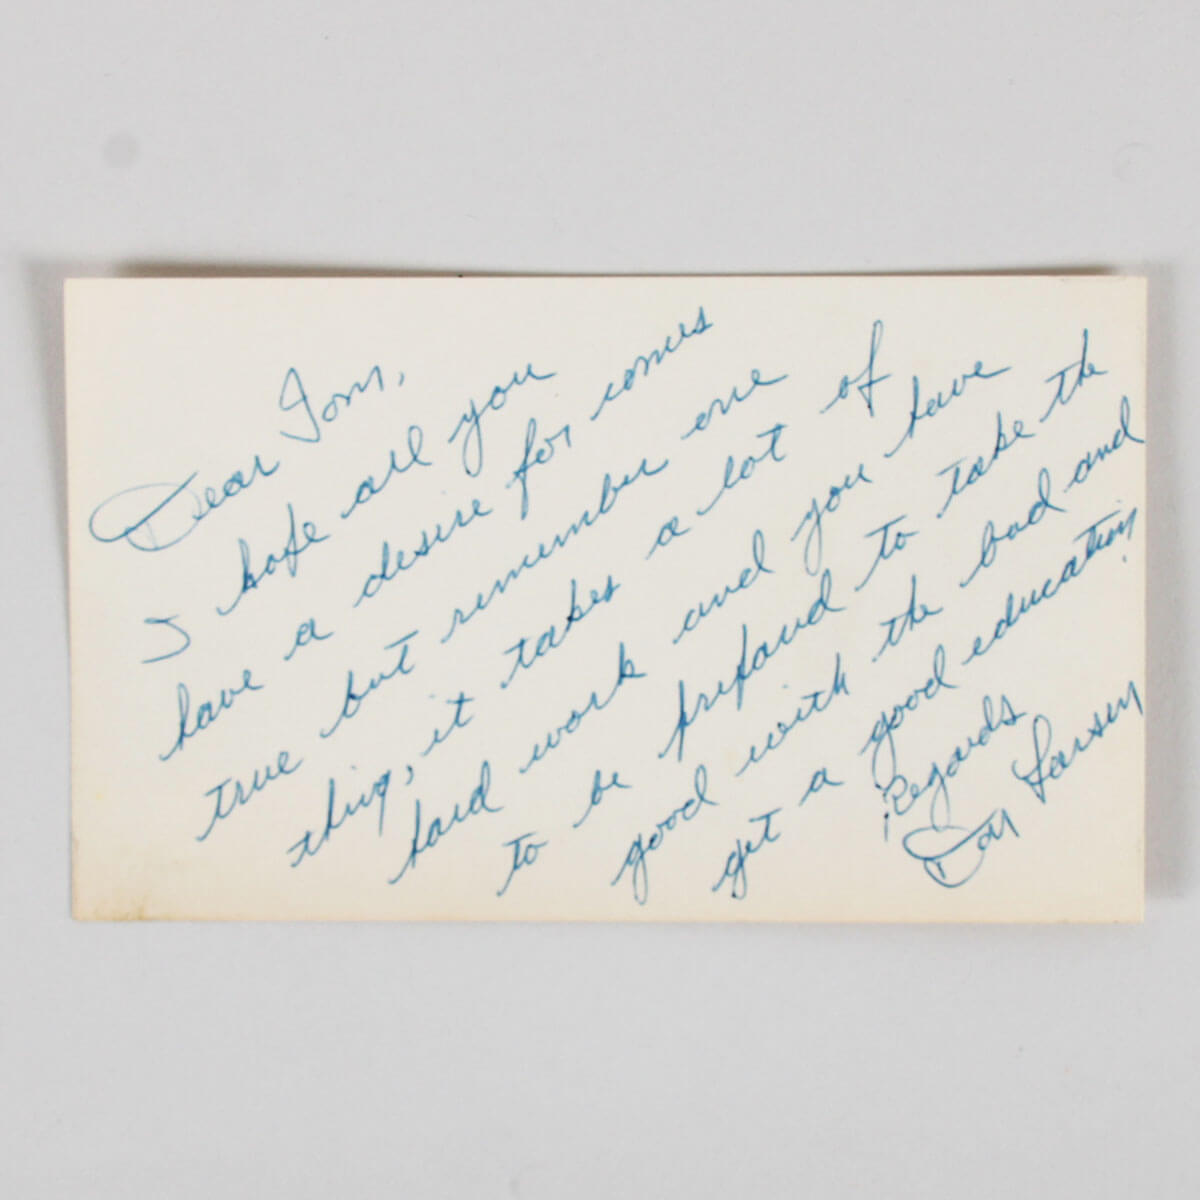 Dear Tom,
I hope all you
have a desire for comes
true but remember one
thing, it takes a lot of
hard work and you have
to be prepared to take the
good with the bad and
get a good education.
Regards
Don Larsen